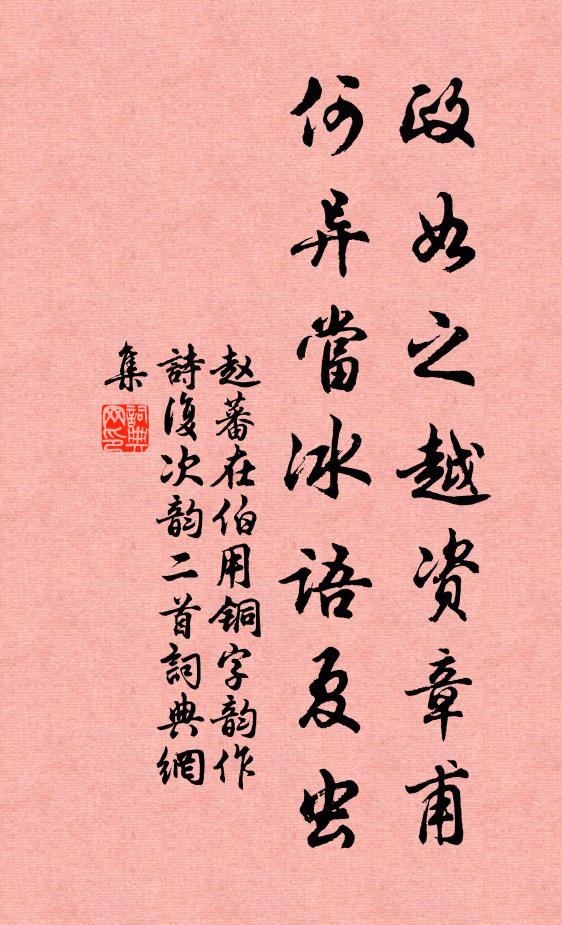 政如之越资章甫
何异當冰语夏虫
赵蕃在伯用铜字韵作
詩復次韵二首詞典網
集
詞典网印